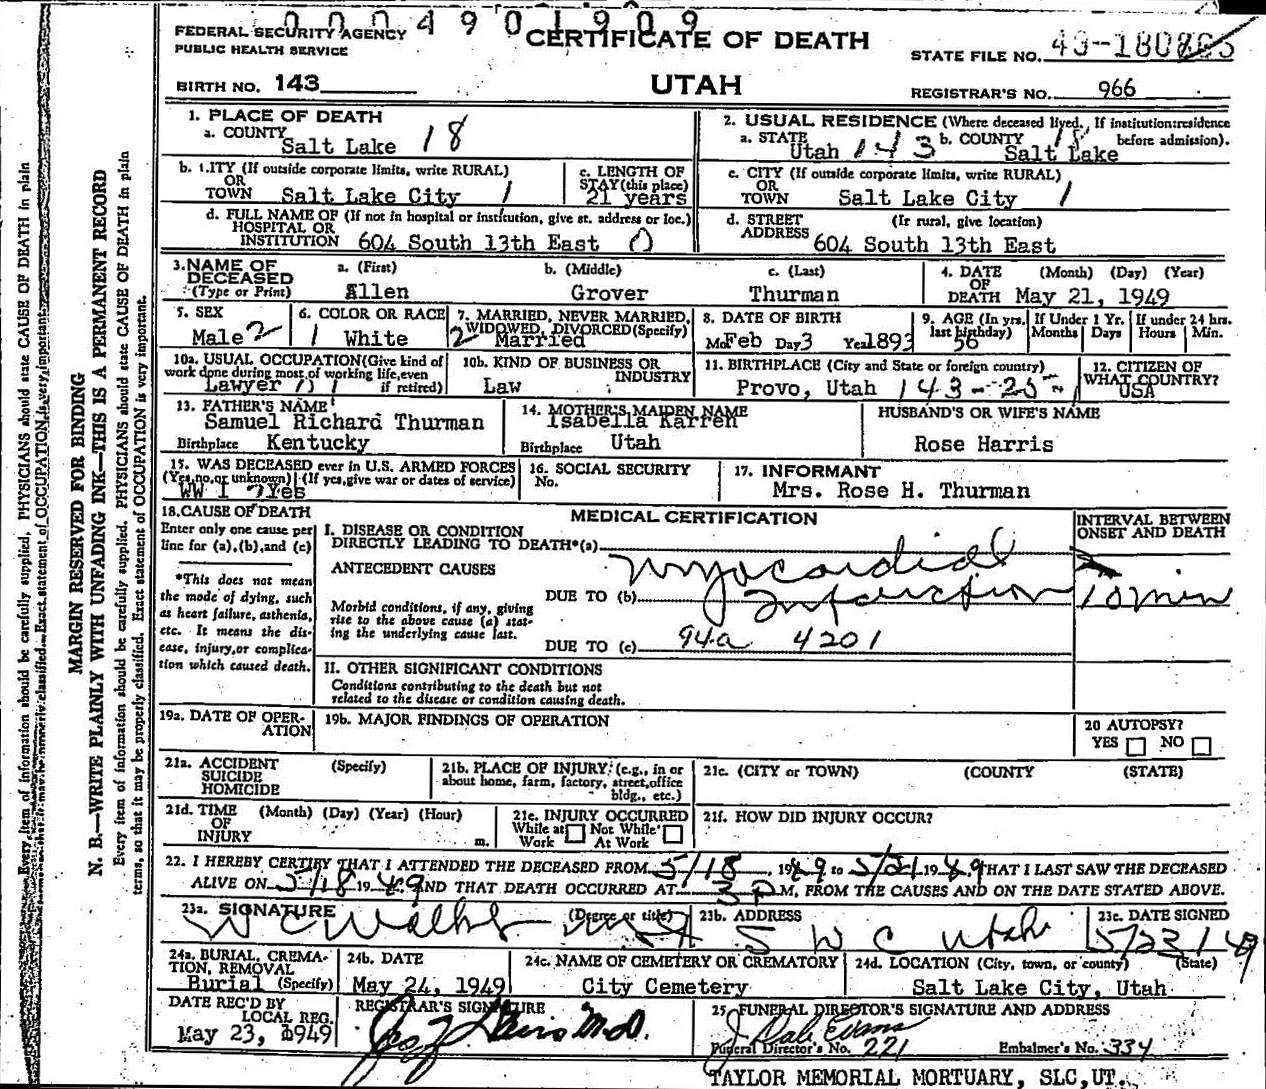 0004901909
FEDERAL SECURITY AGENCY
PUBLIC HEALTH SERVICE
CERTIFICATE OF DEATH
STATE FILE NO.
BIRTH NO. 143
UTAH
REGISTRAR'S NO. 966
1. PLACE OF DEATH
a. COUNTY
Salt Lake 18
2. USUAL RESIDENCE (Where deceased lived. If institution: residence before admission).
a. STATE Utah 143 b. COUNTY 18 Salt Lake
b. CITY (If outside corporate limits, write RURAL)
OR
TOWN Salt Lake City 1
c. LENGTH OF
STAY (this place)
21 years
c. CITY (If outside corporate limits, write RURAL)
OR
TOWN Salt Lake City 1
d. FULL NAME OF (If not in hospital or institution, give st. address or loc.)
HOSPITAL OR
INSTITUTION 604 South 13th East 0
d. STREET (If rural, give location)
ADDRESS 604 South 13th East
3. NAME OF
DECEASED
(Type or Print)
a. (First) b. (Middle) c. (Last)
Allen Grover Thurman
4. DATE (Month) (Day) (Year)
OF
DEATH May 21, 1949
5. SEX
Male 2
6. COLOR OR RACE
1 White
7. MARRIED, NEVER MARRIED,
WIDOWED, DIVORCED (Specify)
2 Married
8. DATE OF BIRTH
Mo Feb Day 3 Year 1893
9. AGE (In yrs. last birthday) 56
If Under 1 Yr. Months Days
If under 24 hrs. Hours Min.
10a. USUAL OCCUPATION (Give kind of
work done during most of working life, even
if retired)
Lawyer
10b. KIND OF BUSINESS OR
INDUSTRY
Law
11. BIRTHPLACE (City and State or foreign country)
Provo, Utah 143-25
12. CITIZEN OF
WHAT COUNTRY?
USA
13. FATHER'S NAME
Samuel Richard Thurman
Birthplace Kentucky
14. MOTHER'S MAIDEN NAME
Isabella Karren
Birthplace Utah
HUSBAND'S OR WIFE'S NAME
Rose Harris
15. WAS DECEASED ever in U.S. ARMED FORCES
(Yes, no, or unknown) (If yes, give war or dates of service)
WW I Yes
16. SOCIAL SECURITY
No.
17. INFORMANT
Mrs. Rose H. Thurman
18. CAUSE OF DEATH
Enter only one cause per
line for (a), (b), and (c)
*This does not mean
the mode of dying, such
as heart failure, asthenia,
etc. It means the dis-
ease, injury, or complica-
tion which caused death.
MEDICAL CERTIFICATION
INTERVAL BETWEEN
ONSET AND DEATH
I. DISEASE OR CONDITION
DIRECTLY LEADING TO DEATH*(a) Myocardial
ANTECEDENT CAUSES
DUE TO (b) Infarction 10 min
Morbid conditions, if any, giving
rise to the above cause (a) stat-
ing the underlying cause last.
DUE TO (c) 94a 4201
II. OTHER SIGNIFICANT CONDITIONS
Conditions contributing to the death but not
related to the disease or condition causing death.
19a. DATE OF OPER-
ATION
19b. MAJOR FINDINGS OF OPERATION
20 AUTOPSY?
YES NO
21a. ACCIDENT (Specify)
SUICIDE
HOMICIDE
21b. PLACE OF INJURY: (e.g., in or
about home, farm, factory, street, office
bldg., etc.)
21c. (CITY or TOWN) (COUNTY) (STATE)
21d. TIME (Month) (Day) (Year) (Hour)
OF
INJURY m.
21e. INJURY OCCURRED
While at Work Not While At Work
21f. HOW DID INJURY OCCUR?
22. I HEREBY CERTIFY THAT I ATTENDED THE DECEASED FROM 5/18 1949 to 5/21 1949 THAT I LAST SAW THE DECEASED
ALIVE ON 5/18 1949 AND THAT DEATH OCCURRED AT 3 P M, FROM THE CAUSES AND ON THE DATE STATED ABOVE.
23a. SIGNATURE (Degree or title)
23b. ADDRESS
23c. DATE SIGNED
Utah 5/23/49
24a. BURIAL, CREMA-
TION, REMOVAL
Burial (Specify)
24b. DATE
May 24, 1949
24c. NAME OF CEMETERY OR CREMATORY
City Cemetery
24d. LOCATION (City, town, or county) (State)
Salt Lake City, Utah
DATE REC'D BY
LOCAL REG.
May 23, 1949
REGISTRAR'S SIGNATURE
M.D.
25. FUNERAL DIRECTOR'S SIGNATURE AND ADDRESS
J Dale Evans
Funeral Director's No. 221 Embalmer's No. 334
TAYLOR MEMORIAL MORTUARY, SLC, UT.
MARGIN RESERVED FOR BINDING
N. B.—WRITE PLAINLY WITH UNFADING INK—THIS IS A PERMANENT RECORD
Every item of information should be carefully supplied. PHYSICIANS should state CAUSE OF DEATH in plain
terms, so that it may be properly classified. Exact statement of OCCUPATION is very important.
Every item of information should be carefully supplied. PHYSICIANS should state CAUSE OF DEATH in plain